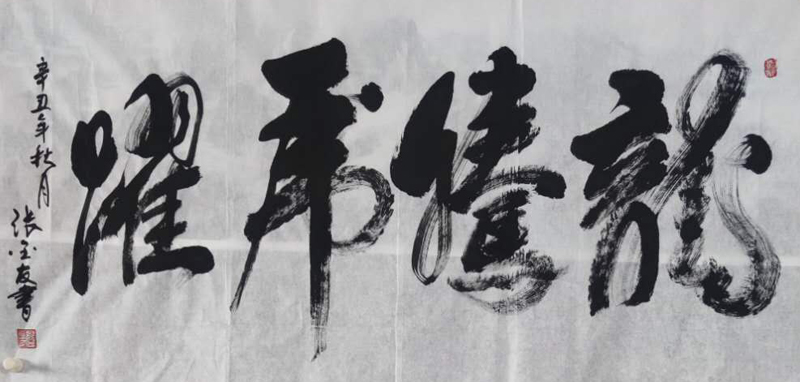 龍騰虎躍
辛丑年秋月
张金友書